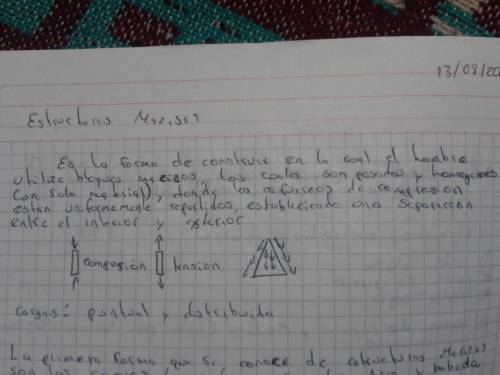 13/09/20
Estructuras Mazisas
Es la forma de construir en la cual el hombre
utiliza bloques macisos, los cuales son pesados y homogeneos
(un solo material), donde los esfuersos de compresion
estan uniformemente repartidos, estableciendo una separacion
entre el interior y exterior
compresión tensión
cargas: puntual y distribuida
La primera forma que se conoce de estructuras Mazas
son las